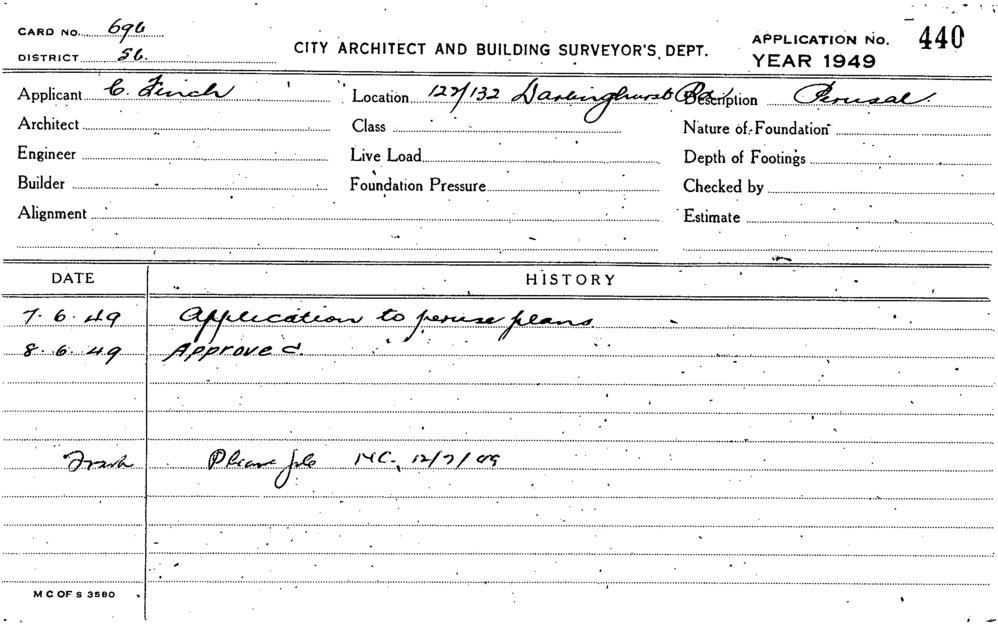 CARD NO. 696
DISTRICT 56.
CITY ARCHITECT AND BUILDING SURVEYOR'S DEPT.
APPLICATION No. 440
YEAR 1949
Applicant C. Finch Location 122/132 Darlinghurst Rd. Description Perusal.
Architect Class Nature of Foundation
Engineer Live Load Depth of Footings
Builder Foundation Pressure Checked by
Alignment Estimate
DATE HISTORY
7. 6. 49 Application to peruse plans
8. 6. 49 Approved.
Please file 12/7/49
M C OF S 3580